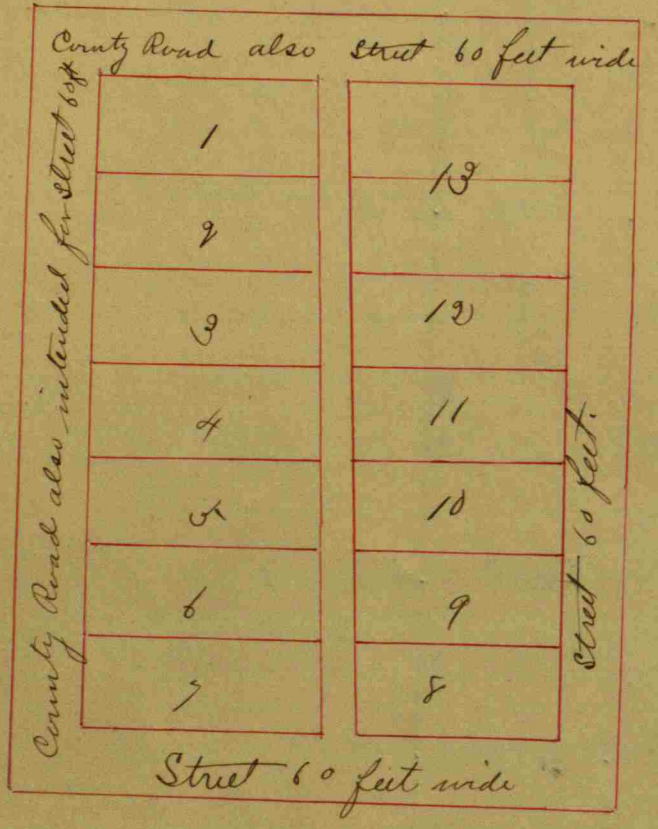 County Road also Street 60 feet wide
County Road also intended for Street 60ft
1
2
3
4
5
6
7
13
12
11
10
9
8
Street 60 feet.
Street 60 feet wide